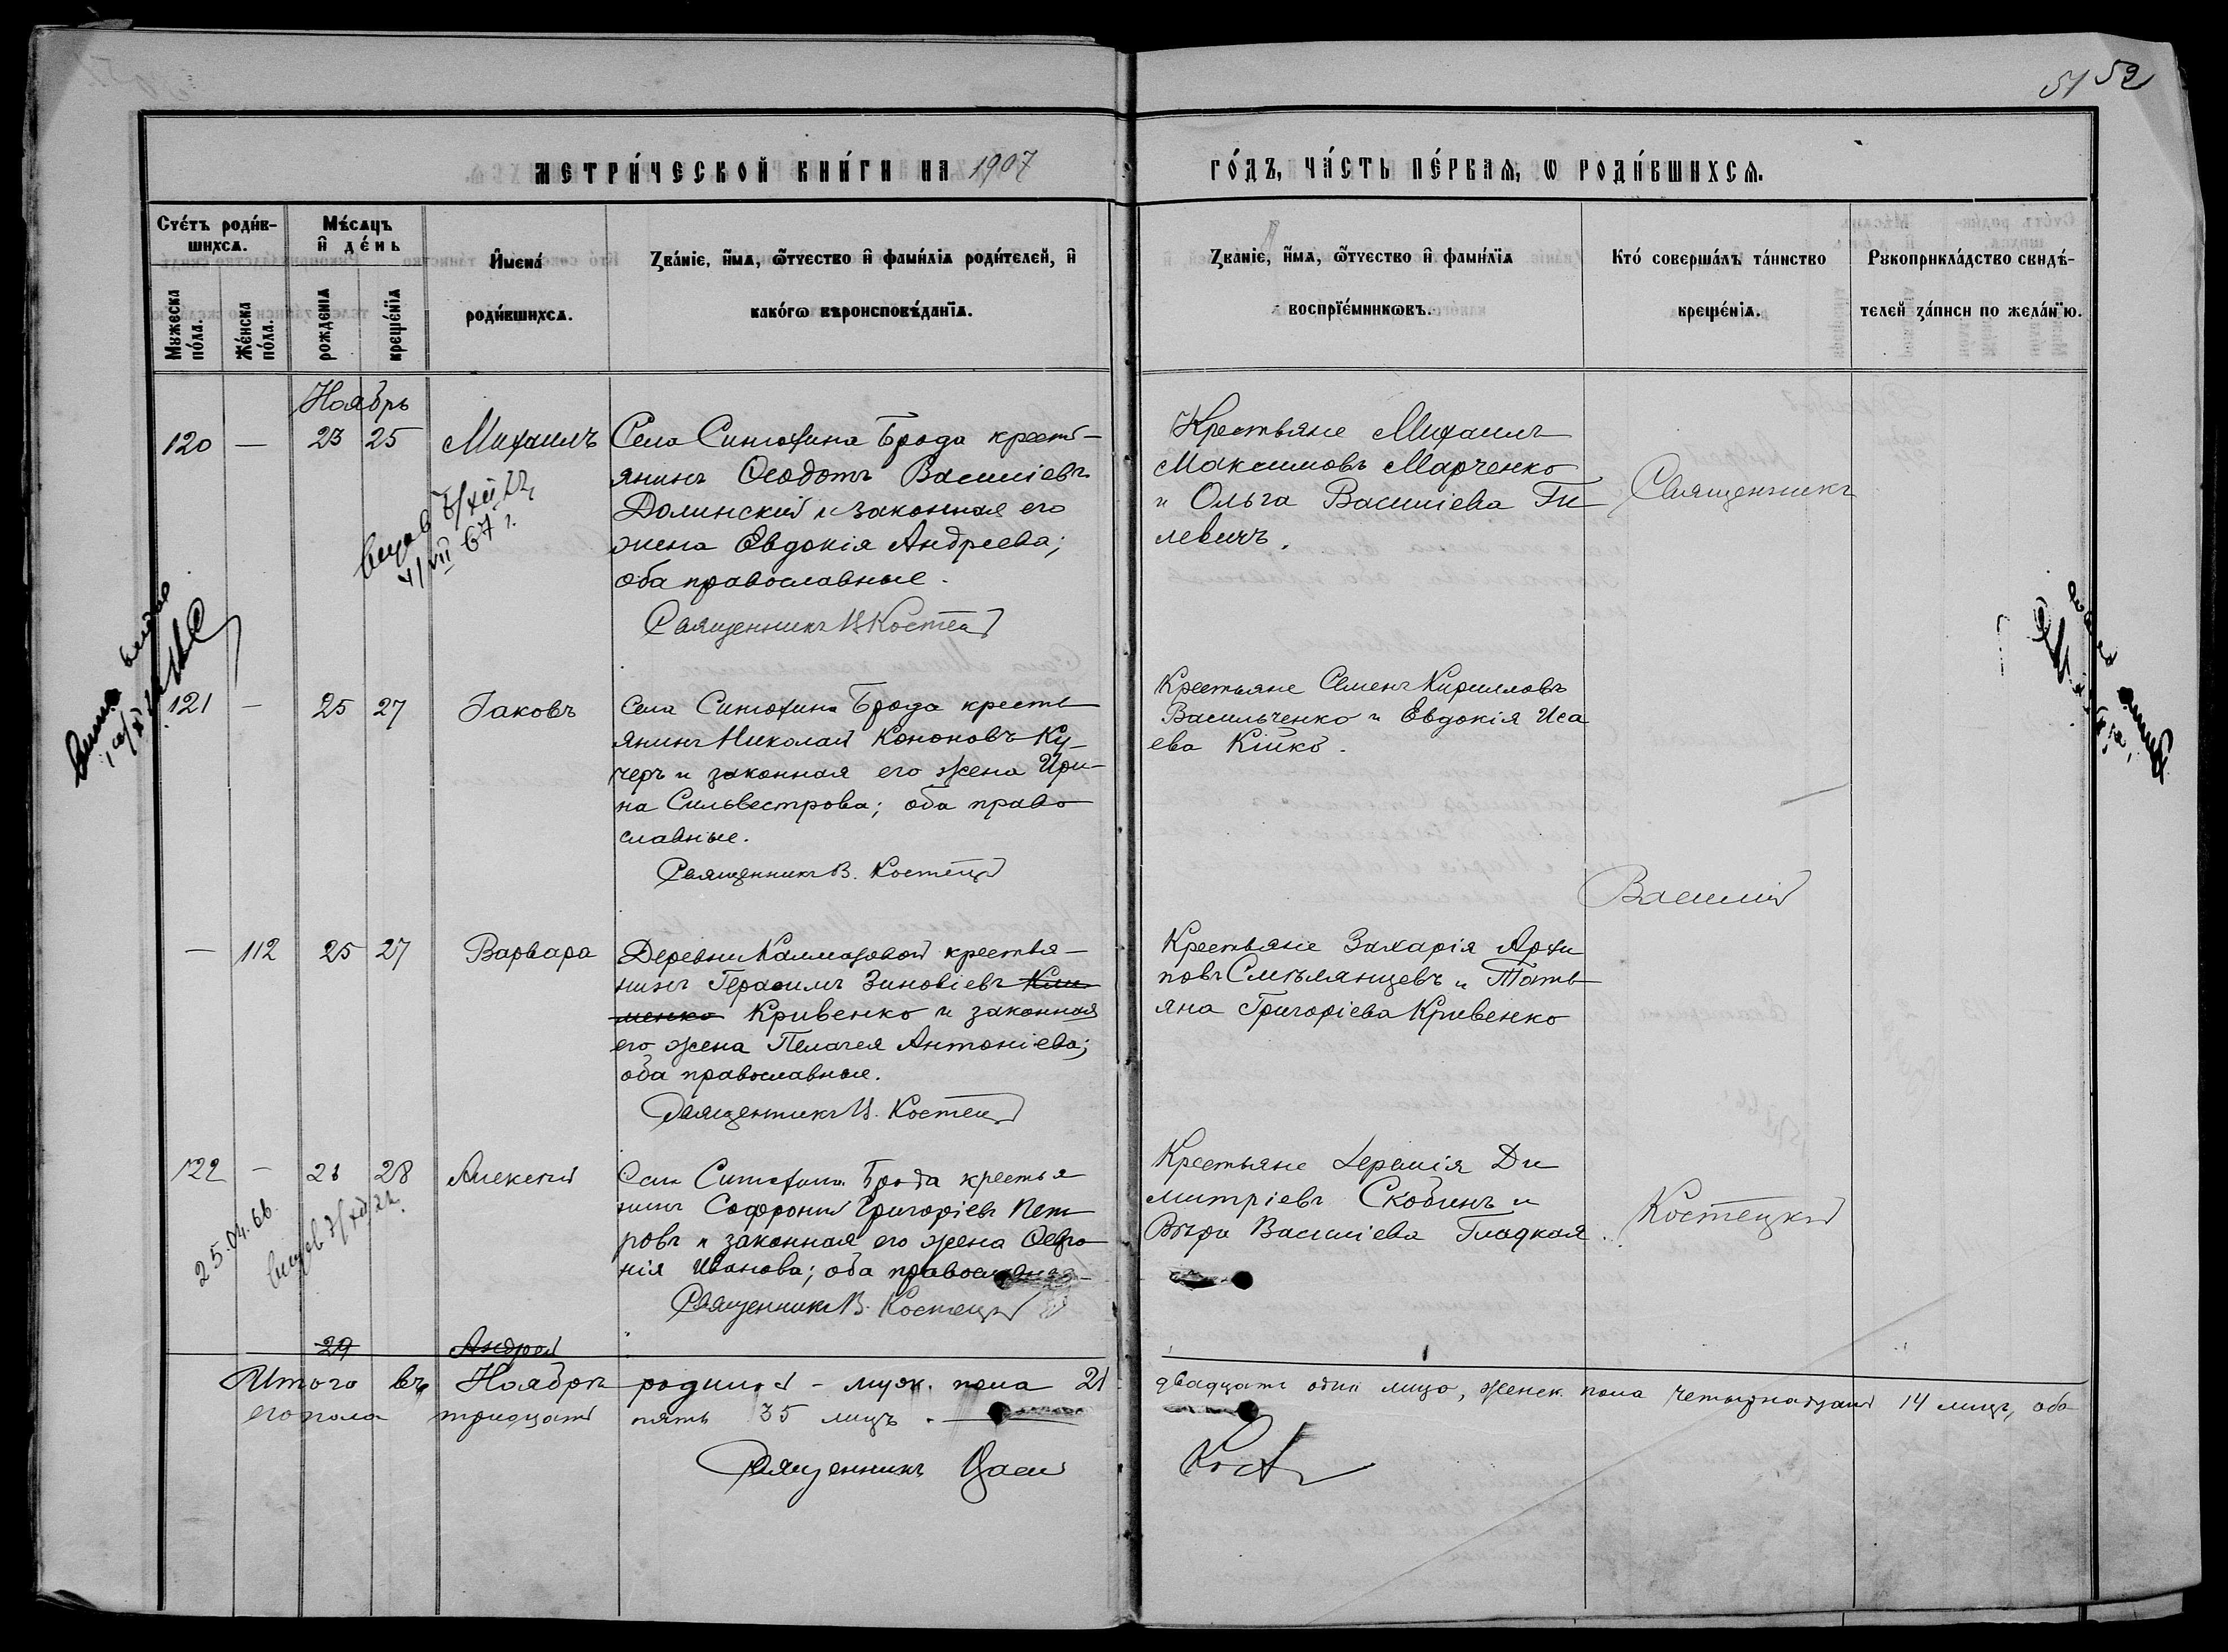 51 52
МЕТРИ́ЧЕСКОЙ КНИ́ГИ НА 1907
ГО́ДЪ, ЧА́СТЬ ПЕ́РВАѦ, Ѡ РОДИ́ВШИХСѦ.
Счетъ роди́в-
шихсѧ.
Мѣ́сѧцъ
и҆ де́нь
Мꙋжеска
по́ла.
Же́нска
по́ла.
рожденїѧ
креще́нїѧ
И҆мена́
роди́вшихсѧ.
Зва́нїе, и҆́мѧ, ѻ҆́тчество и҆ фами́лїѧ роди́телей, и҆
како́гѡ вѣроисповѣ́данїѧ.
Зва́нїе, и҆́мѧ, ѻ҆́тчество и҆ фами́лїѧ
воспрїе́мникѡвъ.
Кто́ соверша́лъ та́инство
креще́нїѧ.
Рꙋкоприкла́дство свидѣ́-
телей за́писи по жела́нїю.
Ноябрь
120 — 23 25 Михаилъ
Села Синюхина Брода кресть-
янинъ Ѳеодотъ Василіевъ
Долинский и законная его
жена Евдокія Андреева;
оба православные.
Священникъ В Костец
Крестьяне Михаилъ
Максимовъ Марченко
и Ольга Василіева Ги
левичъ.
Священникъ
67 г.
121 — 25 27 Іаковъ
Села Синюхина Брода кресть
янинъ Николай Кононовъ Ку-
черъ и законная его жена Ири-
на Сильвестрова; оба право
славные.
Священникъ В. Костец
Крестьяне Семенъ Кирилловъ
Васильченко и Евдокія Иса
ева Кійко.
Василій
— 112 25 27 Варвара
Деревни Калмазовой крестья-
нинъ Герасимъ Зиновіевъ Кли
менко Кривенко и законная
его жена Пелагея Антоніева;
оба православные.
Священникъ В. Костец
Крестьяне Захарія Архи
повъ Смѣлянцевъ и Тать
яна Григоріева Кривенко
122 — 21 28 Алексій
Села Синюхина Брода крестья
нинъ Софроній Григоріевъ Пет
ровъ и законная его жена Ѳевро
нія Иванова; оба православн
Священникъ В. Костецкій
Крестьяне Іеремія Ди
митріевъ Скобинъ и
Вѣра Василіева Гладкая.
Костецкій
25.04.66.
29 Андрей
Итого въ Ноябрѣ родилось - муж. пола 21 двадцать одно лицо, женск. пола четырнадцать 14 лицъ, обо-
его пола тридцать пять 35 лицъ.
Священникъ Васи Кост